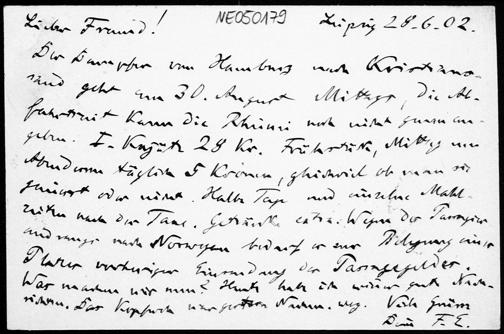 NE050179
Lieber Freund! Leipzig 28.6.02.
Der Dampfer von Hamburg nach Kristian-
sand geht am 30. August Mittags, die Ab-
fahrtzeit kann die Rhederei noch nicht genau an-
geben. I. Kajüte 28 Kr. Frühstück, Mittag und
Abendessen täglich 5 Kronen, gleichviel ob man sie
geniesst oder nicht. Halbe Tage und einzelne Mahl-
zeiten nach der Taxe. Getränke extra. Wegen der Passagier
nach Norwegen bedarf es zur Belegung eines
Platzes vorheriger Einsendung der Passagegelder.
Was machen wir nun? Heute habe ich wieder gute Nach-
richten. Das Nahm. weg. Viele Grüsse
Dein F. E.